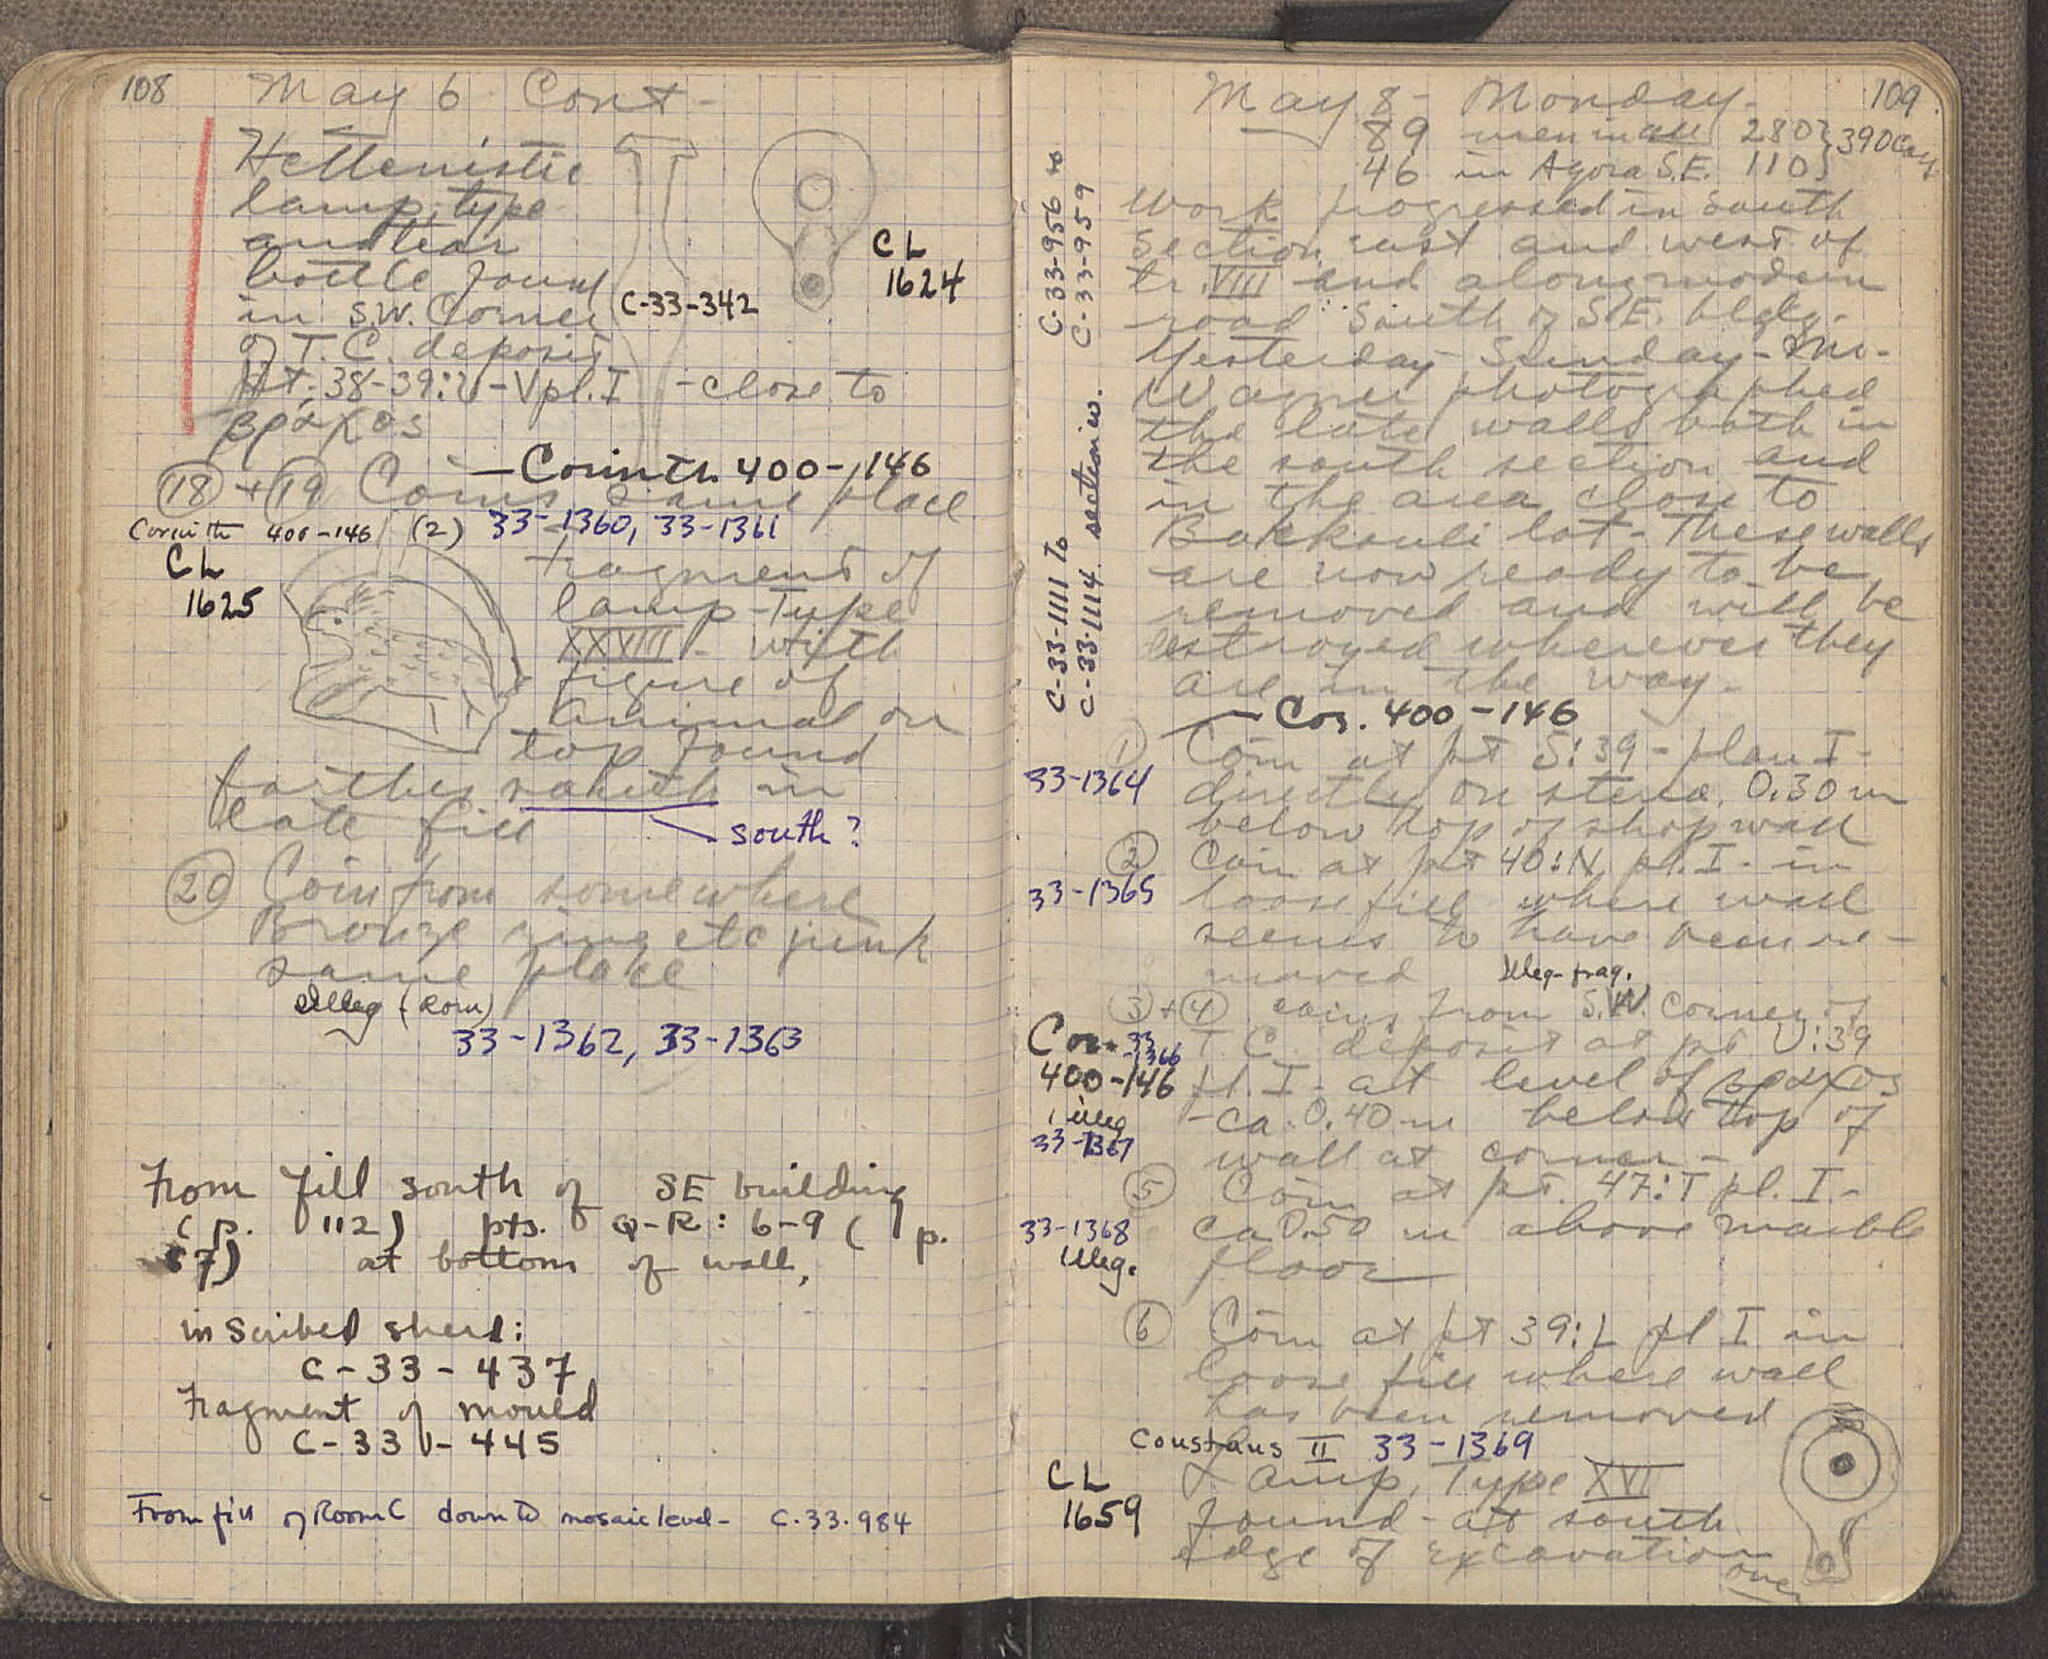 108 May 6 Cont-
Hellenistic
lamp, type
and tear
bottle found
in S.W. Corner
of T.C. deposit
pt. 38-39:U-V pl. I - close to
βράχος
C-33-342
CL
1624
- Corinth 400-146
18 + 19 Coins same place
Corinth 400-146 (2) 33-1360, 33-1361
CL
1625
fragment of
lamp - Type
XXVIII - with
figure of
animal on
top found
farther south in
late fill
south?
20 Coin from somewhere
Bronze ring etc junk
same place
Illeg (Rom)
33-1362, 33-1363
From fill south of SE building
(p. 112) pts. Q-R: 6-9 (p.
87) at bottom of wall,
inscribed sherd:
C-33-437
Fragment of mould
C-33-445
From fill of Room C down to mosaic level - C.33.984
May 8 - Monday - 109
89 men in all 280 } 390 Cay
46 in Agora S.E. 110 }
Work progressed in South
Section east and west of
tr. VIII and along modern
road south of S.E. bldg.
Yesterday - Sunday - Mr.
Wagner photographed
the late walls both in
the south section and
in the area close to
Bakkouli lot - These walls
are now ready to be
removed and will be
destroyed wherever they
are in the way -
C-33-956 to
C-33-959
C-33-1111 to
C-33-1114 section iv.
- Cor. 400-146
1 Coin at pt S:39 - plan I -
33-1364 directly on stereo. 0.30 m
below top of shop wall
2 Coin at pt 40:N, pl. I - in
33-1365 loose fill where wall
seems to have been re-
moved
Illeg. frag.
3 + 4 coins from S.W. corner of
Cor. 33-1366 T.C. deposit at pt U:39
400-146 pl. I - at level of βράχος
1 illeg - ca. 0.40 m below top of
33-1367 wall at corner -
5 Coin at pt. 47:T pl. I -
33-1368 ca 0.50 m above marble
Illeg. floor
6 Coin at pt 39:L pl I in
loose fill where wall
has been removed
Constans II 33-1369
CL
1659
Lamp, Type XVI
found - at south
edge of excavation
over